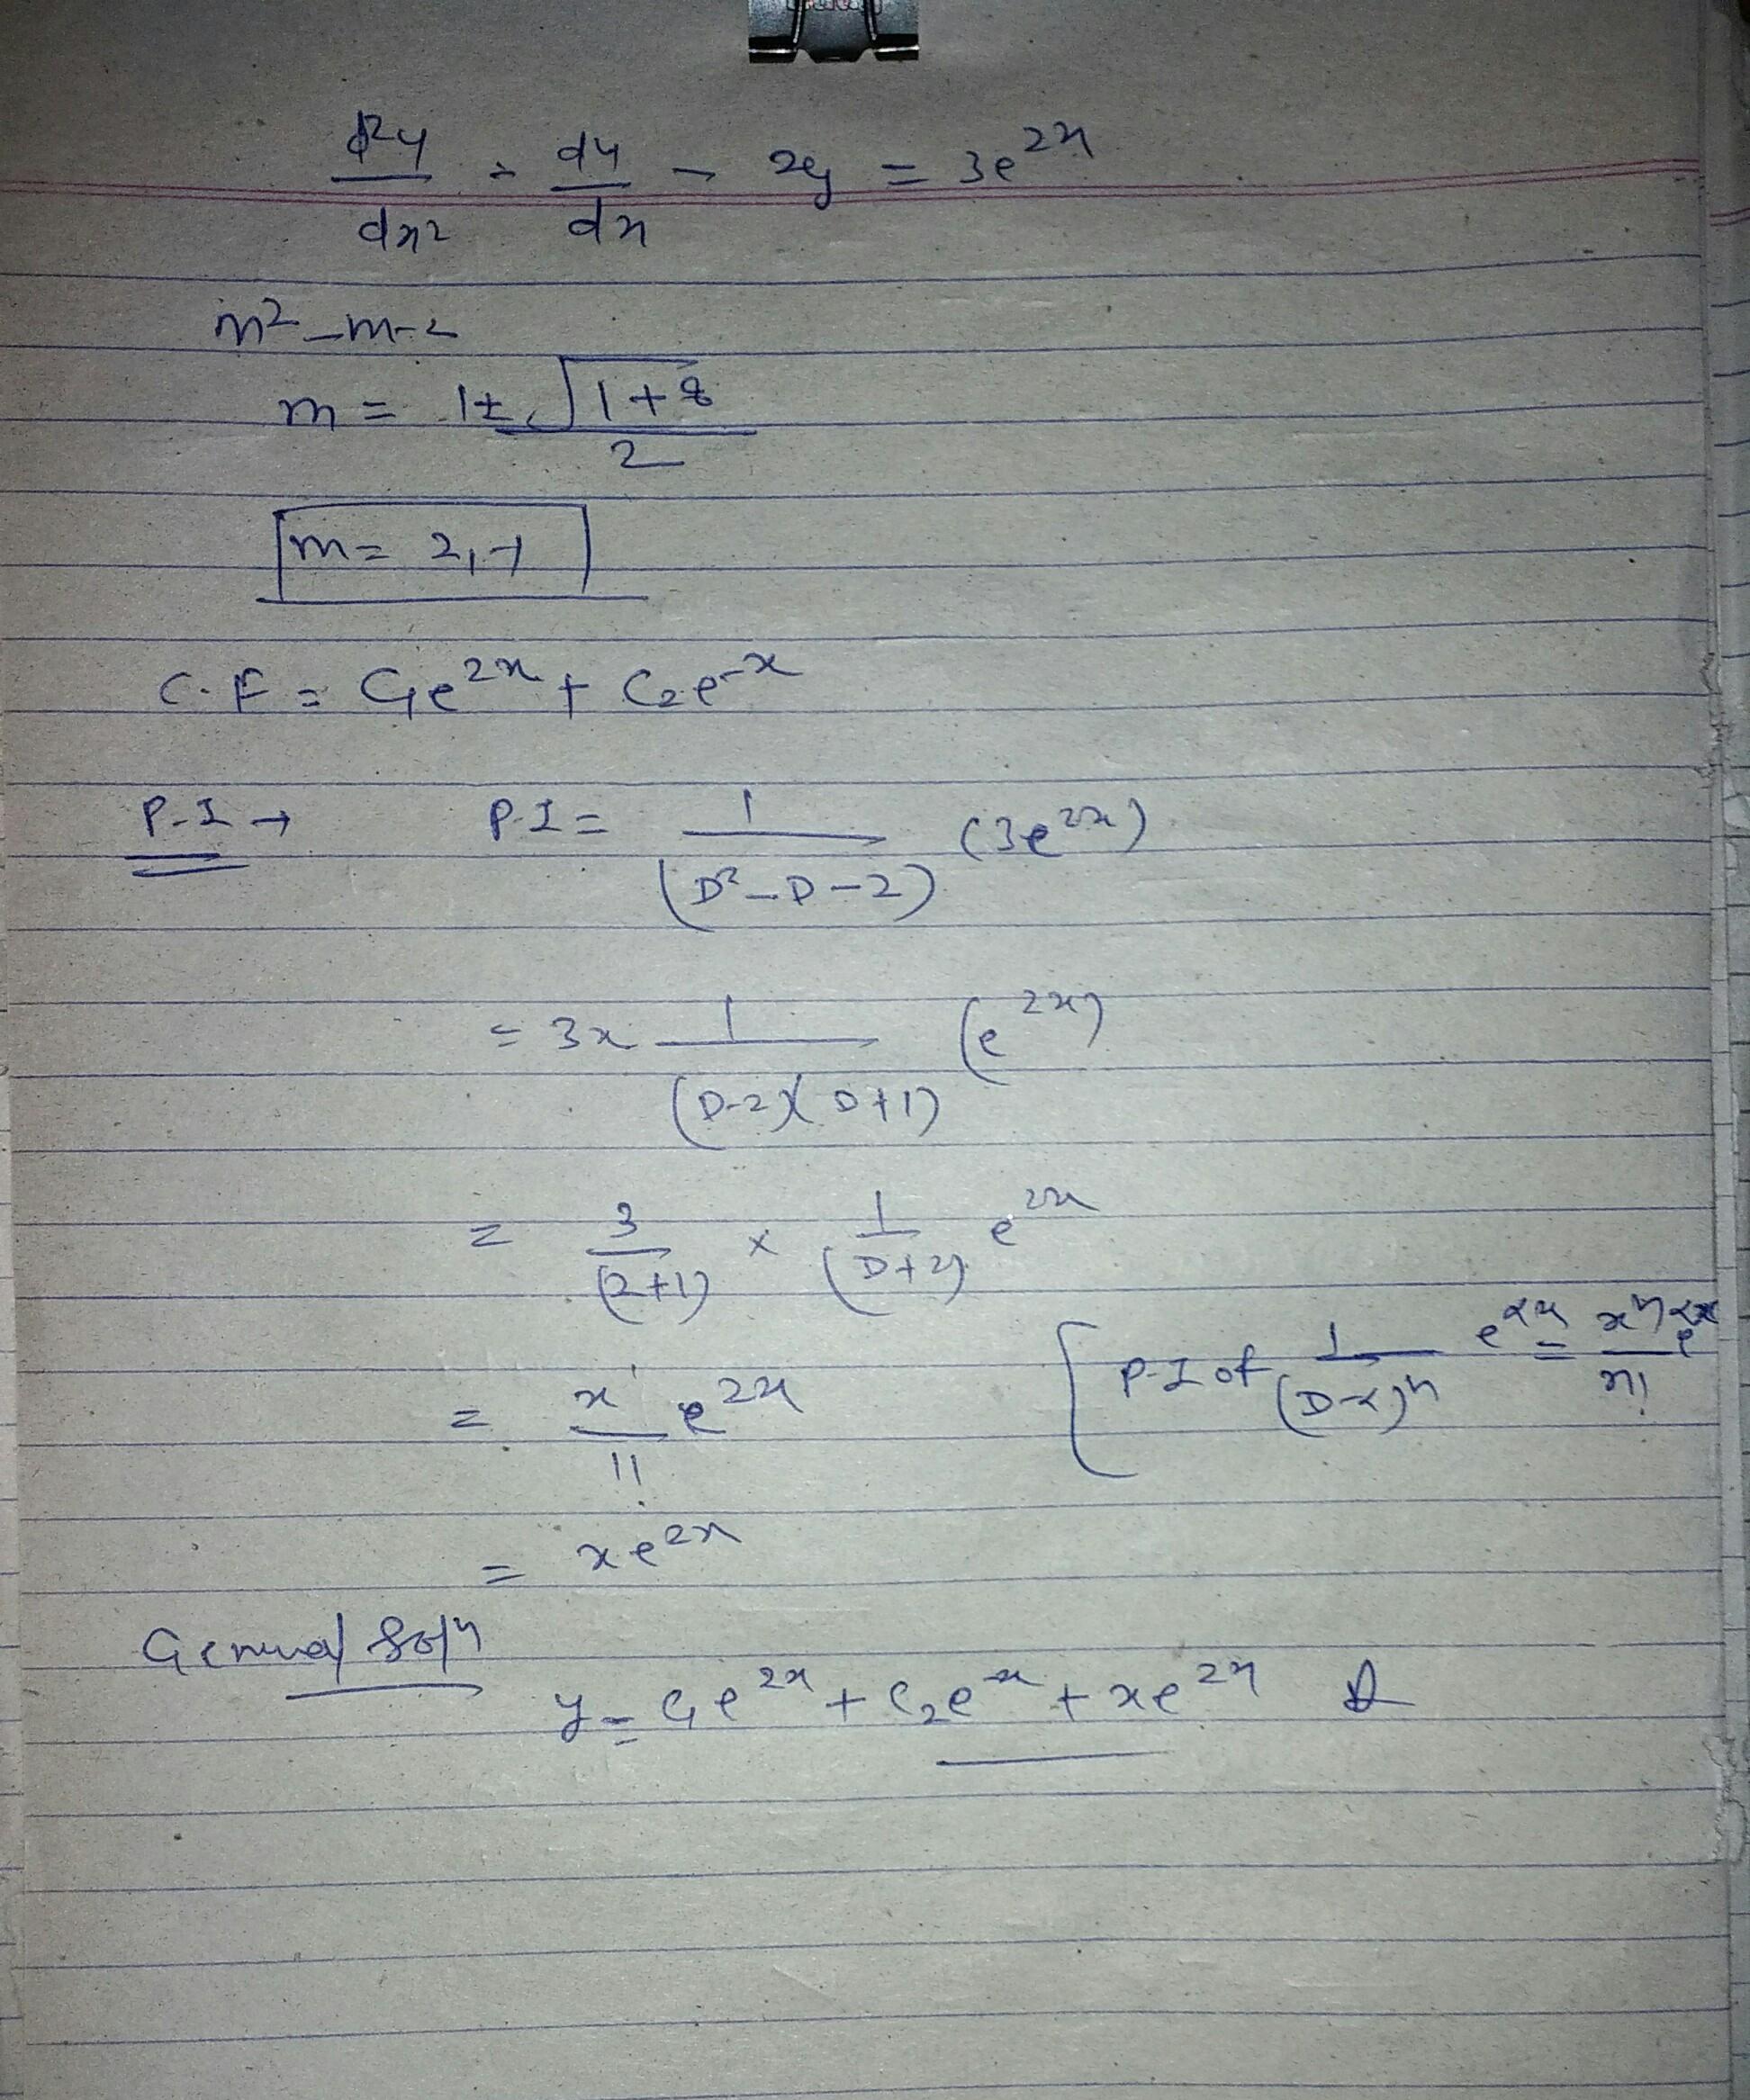 d²y/dx² - dy/dx - 2y = 3e^2x
m² - m - 2
m = 1 ± √(1+8) / 2
m = 2, -1
C.F = C₁e^2x + C₂e^-x
P.I → P.I = 1/(D² - D - 2) (3e^2x)
= 3x 1/((D-2)(D+1)) (e^2x)
= 3/(2+1) × 1/(D+2) e^2x
= x¹/1! e^2x
[ P.I of 1/(D-α)^n e^αx = x^n/n! e^αx
= xe^2x
General Sol^n
y = C₁e^2x + C₂e^-x + xe^2x